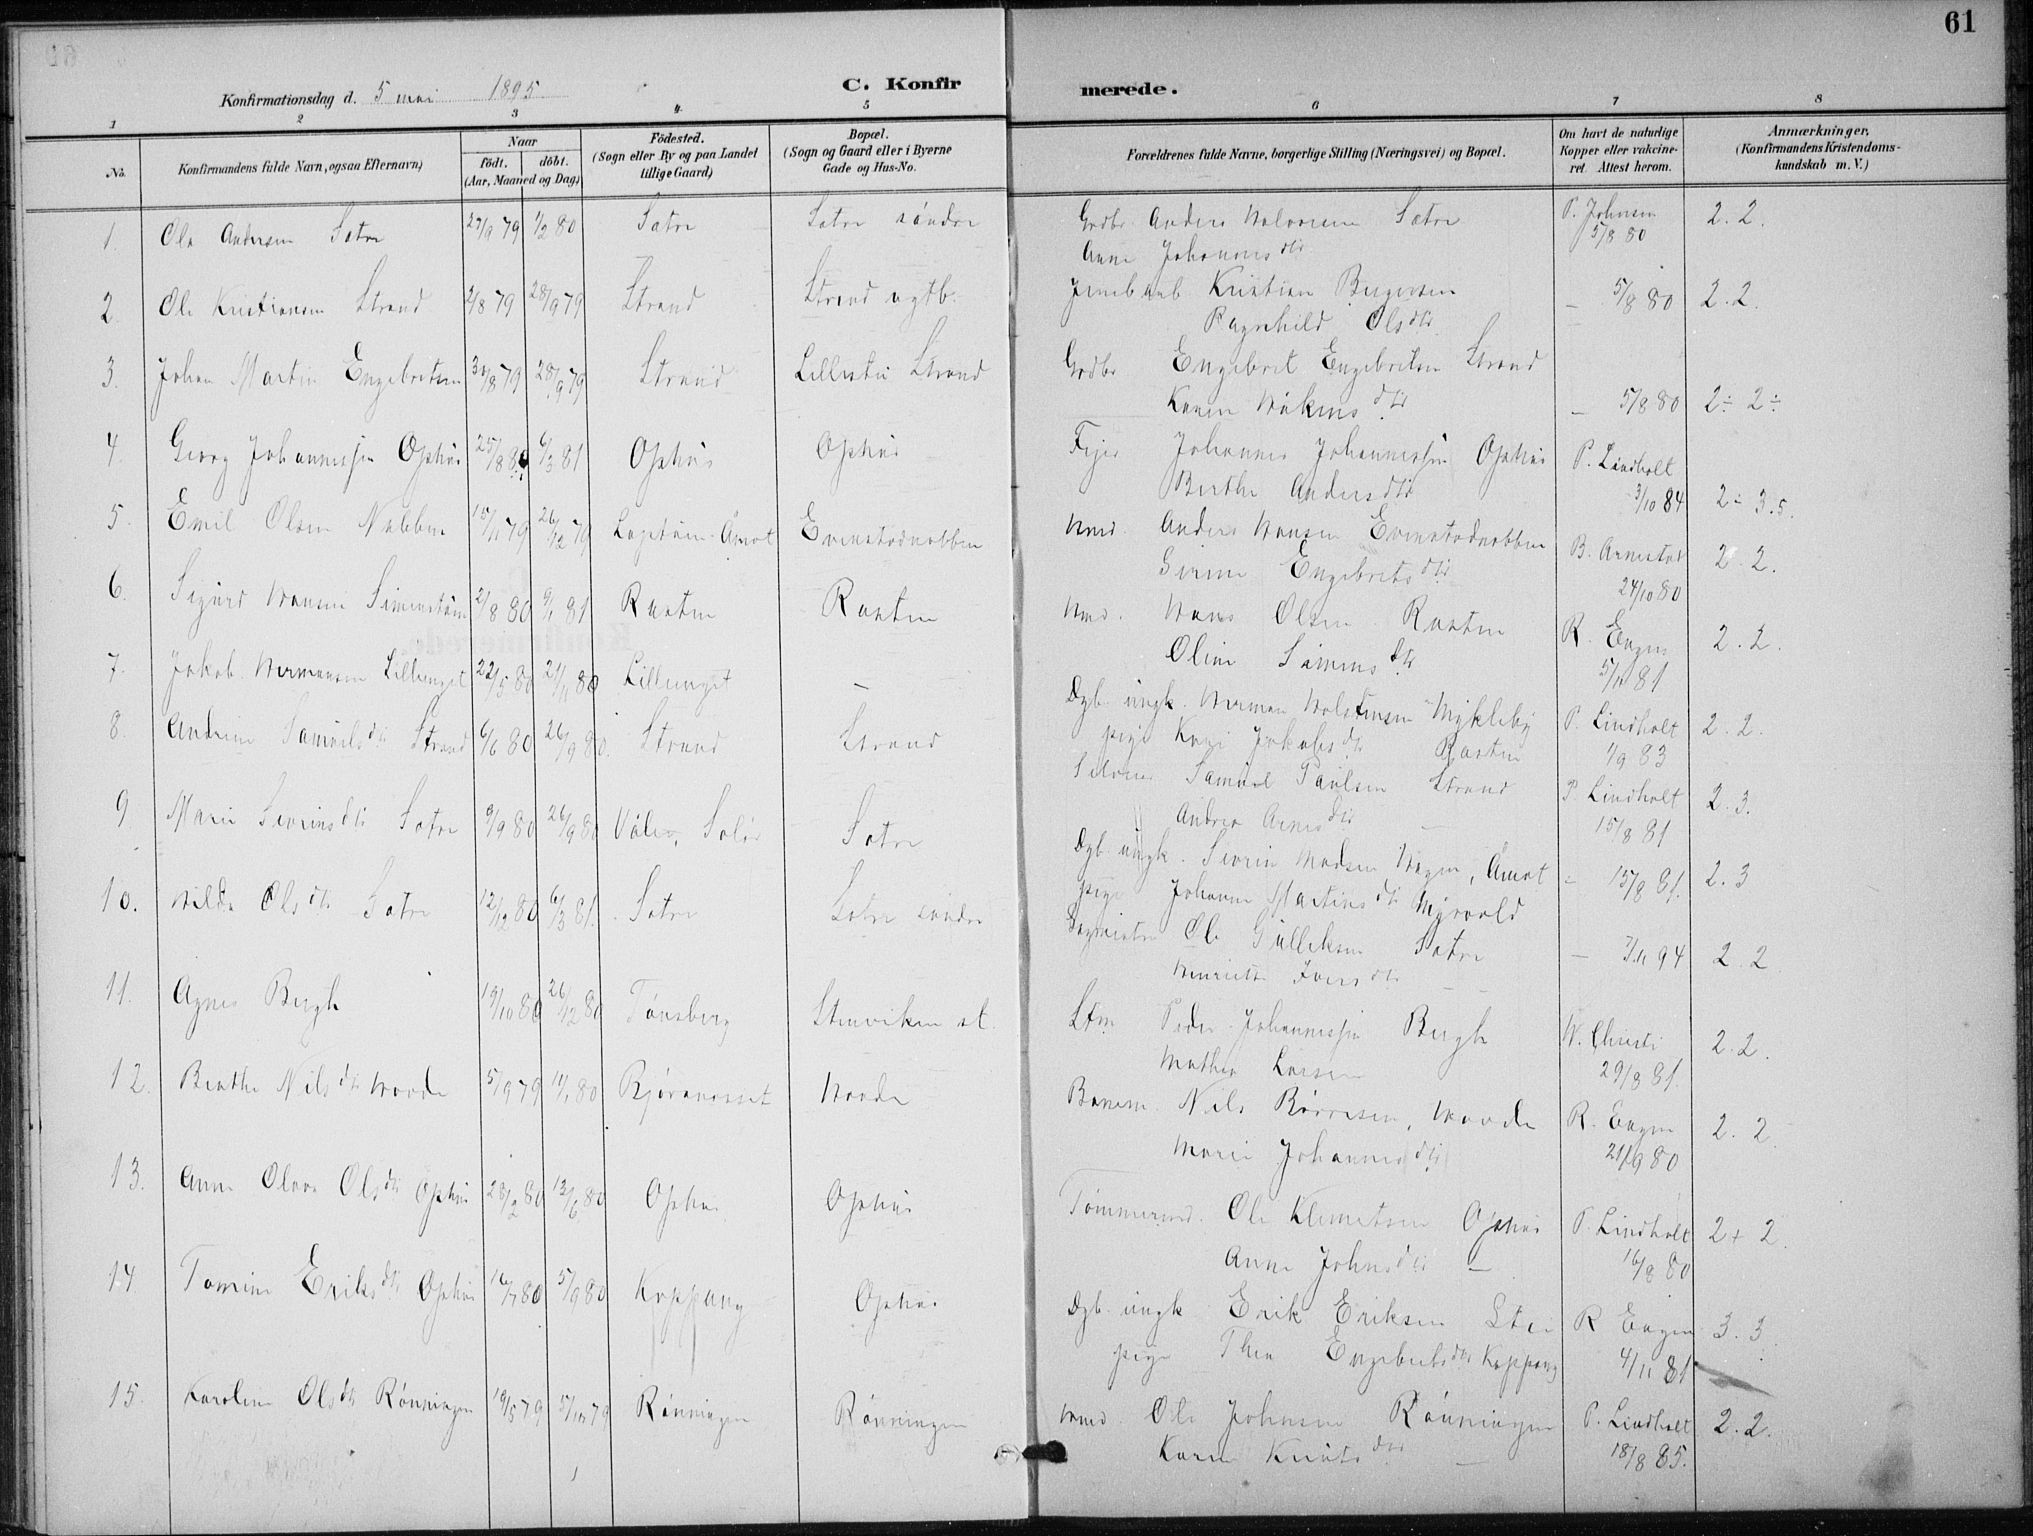 61
Konfirmationsdag d. 5 mai 1895.
C. Konfirmerede.
1 2 3 4 5 6 7 8
No.
Konfirmandens fulde Navn, ogsaa Efternavn)
Naar
födt. döbt.
(Aar, Maaned og Dag)
Födested.
(Sogn eller By og paa Landet
tillige Gaard)
Bopæl.
(Sogn og Gaard eller i Byerne
Gade og Hus-No.
Forældrenes fulde Navne, borgerlige Stilling (Næringsvei) og Bopæl.
Om havt de naturlige
Kopper eller vakcine-
ret Attest herom.
Anmærkninger,
(Konfirmandens Kristendoms-
kundskab m. V.)
1. Ole Andersen Satre 27/9 79 1/2 80 Satre Satre söndre Grdbr. Anders Halvorsen Sætre P. Johnsen 2. 2.
Anne Johannesdtr 5/8 80
2. Ole Kristiansen Strand 2/8 79 28/9 79 Strand Strand Kristian Bergersen – 5/8 80 2. 2.
Ragnhild Olsdtr
3. Johan Martin Engebretsen 30/8 79 28/9 79 Strand Lillestu Strand Grdbr Engebret Engebretsen Strand
Karen Håkensdtr – 5/8 80 2÷ 2÷
4. Georg Johannessen Ophus 25/8 80 6/3 81 Ophus Ophus Johannes Johannessen Ophus P. Lindholt
Berthe Andersdtr 3/10 84 2÷ 3.5.
5. Emil Olsen Nabben 15/11 79 26/12 79 Åmot Evenstadnabben Hmd. Anders Hansen Evenstadnabben
Sirine Engebretsdtr 24/10 80 2. 2.
6. Sigurd Hansen 2/8 80 9/1 81 Rasten Rasten Hmd. Hans Olsen Rasten R. Engen 2. 2.
Oline Simensdtr 5/11 81
7. Jakob Hermansen Lillenget 22/5 80 21/11 80 Lillenget – Dgb. ungk. Herman Holstensen Mykleby P. Lindholt 2. 2.
pige Kari Jakobsdtr Rasten 1/9 83
8. Andrine Samuelsdtr Strand 6/6 80 26/9 80 Strand Strand Samuel Paulsen Strand P Lindholt 2. 3.
Andrea Arnesdtr – 15/8 81
9. Marie Sevrinsdtr Satre 9/9 80 26/9 80 Våler, Solör Satre Dgb. ungk. Sevrin Madsen Hagen, Åmot – 15/8 81. 2. 3
pige Johanne Martinsdtr Myrvold
10. Hilda Olsdtr Satre 12/12 80 6/3 81. Satre Satre söndre Ole Gulliksen Satre – 7/11 94 2. 2
Henriette Iversdtr –
11. Agnes Bergh 19/10 80 26/12 80 Tönsberg Stenviken st. Stm Peder Johannessen Bergh W. Christi 2. 2.
Mathea Larsen 29/8 81.
12. Berthe Nilsdtr Hovde 5/9 79 11/1 80 Björaneset Hovde Banem. Nils Börresen, Hovde R. Engen 2. 2
Marie Johannesdtr 21/9 80
13. Anne Olava Olsdtr Ophus 28/2 80 13/6 80 Ophus Ophus Tömmermd. Ole Klemetsen Ophus P. Lindholt 2+ 2.
Anne Johnsdtr – 16/8 80
14 Tomine Eriksdtr Ophus 16/7 80 5/9 80 Koppang Ophus Dgb. ungk Erik Eriksen Stai R Engen 3. 3
pige Thea Engebretsdtr Koppang 4/11 81
15. Karoline Olsdtr Rönningen 19/5 79 5/10 79 Rönningen Rönningen Hmd. Ole Johnsen Rönningen P. Lindholt 2. 2.
Karen Knutsdtr – 18/8 85.